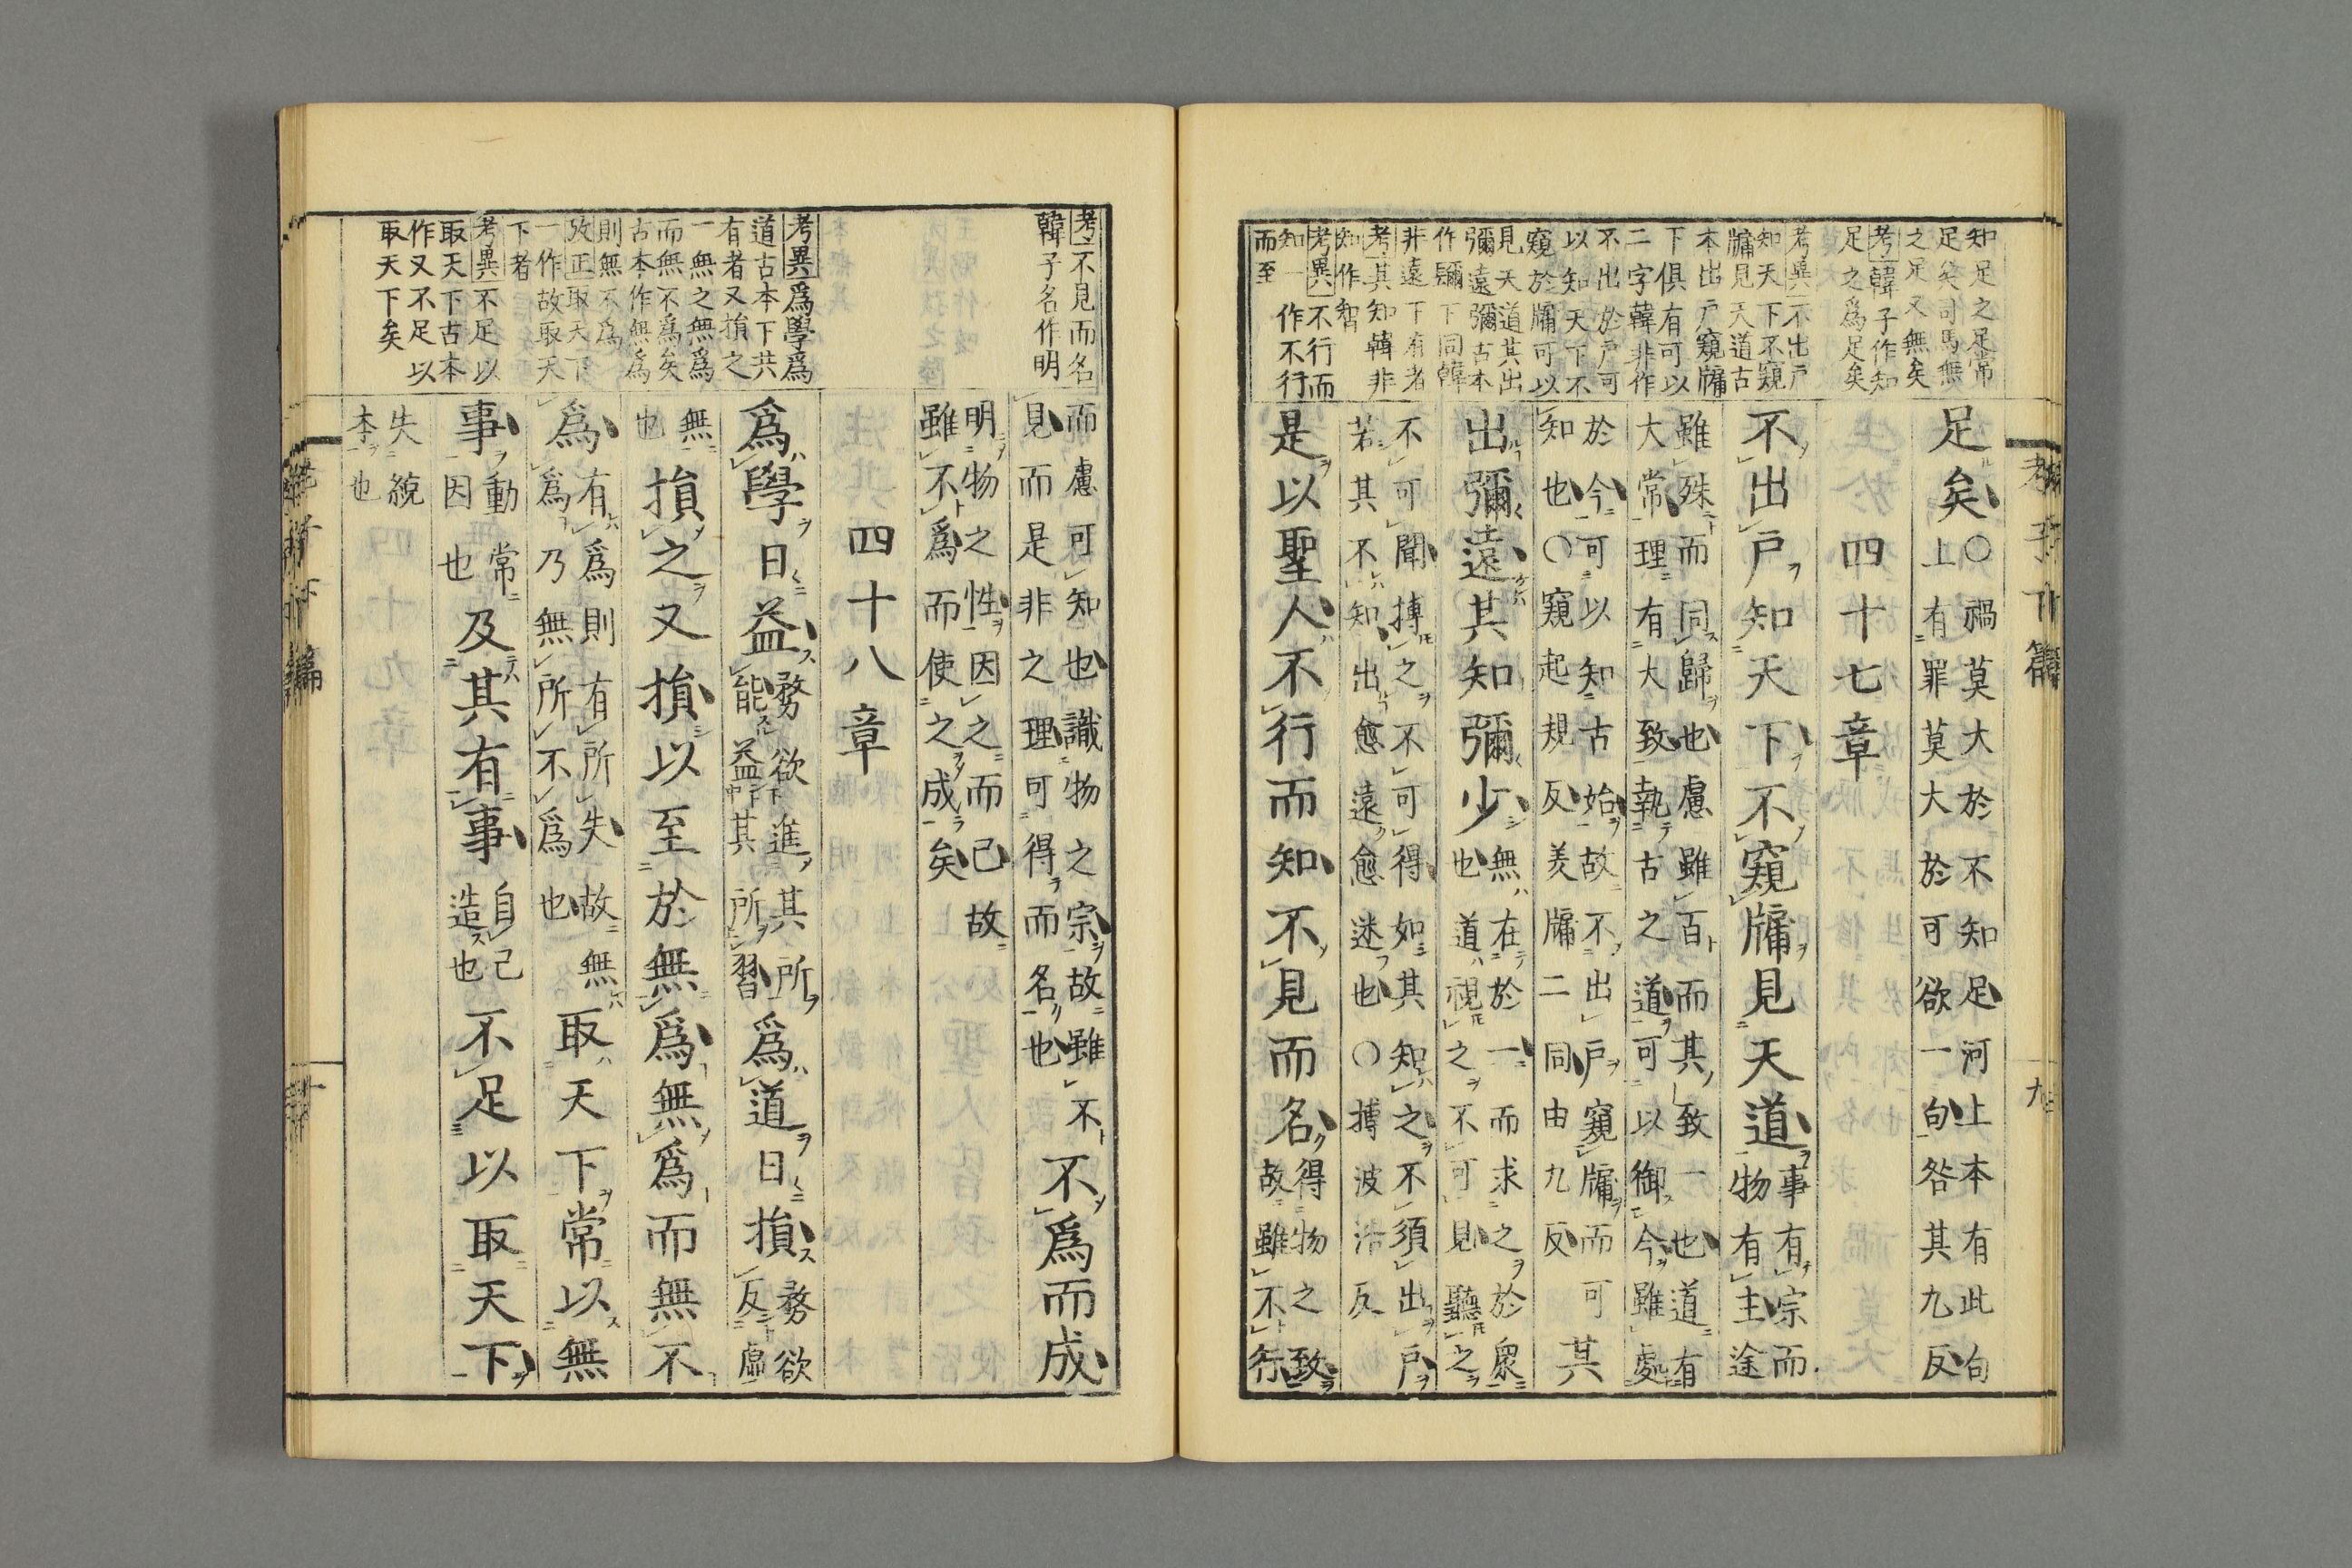 知足之足常
足矣司馬無
之足又無矣
考韓子作知
足之爲足矣
考異不出戶
知天下不窺
牖見天道古
本出戶窺牖
下俱有可以
二字韓非作
不出於戶可
以知天下不
窺於牖可以
見天道其出
彌遠彌古本
作彌下同韓
非遠下有者
考其知韓非
知作智
考異不行而
知一作不行
而至
足矣○禍莫大於不知足河上本有此句
上有罪莫大於可欲一句咎其九反
四十七章
不出戶知天下不窺牖見天道事有宗而
物有主途
雖殊而同歸也慮雖百而其致一也道有
大常理有大致執古之道可以御今雖處
於今可以知古始故不出戶窺牖而可
知也○窺起規反羑牖二同由九反其
出彌遠其知彌少無在於一而求之於衆
也道視之不可見聽之
不可聞搏之不可得如其知之不須出戶
若其不知出愈遠愈迷也○搏波洛反
是以聖人不行而知不見而名得物之致
故雖不行
老子下篇
九
考不見而名
韓子名作明
考異爲學爲
道古本下共
有者又損之
一無之無爲
而無不爲矣
古本作無爲
則無不爲
攷正取天下
一作故取天
下者
考異不足以
取天下古本
作又不足以
取天下矣
而慮可知也識物之宗故雖不
見而是非之理可得而名也不爲而成
明物之性因之而已故
雖不爲而使之成矣
四十八章
爲學日益務欲進其所
能益其所習爲道日損務欲
反虛
無
也損之又損以至於無爲無爲而無不
爲有爲則有所失故無
爲乃無所不爲也取天下常以無
事動常
因也及其有事自己
造也不足以取天下
失統
本也